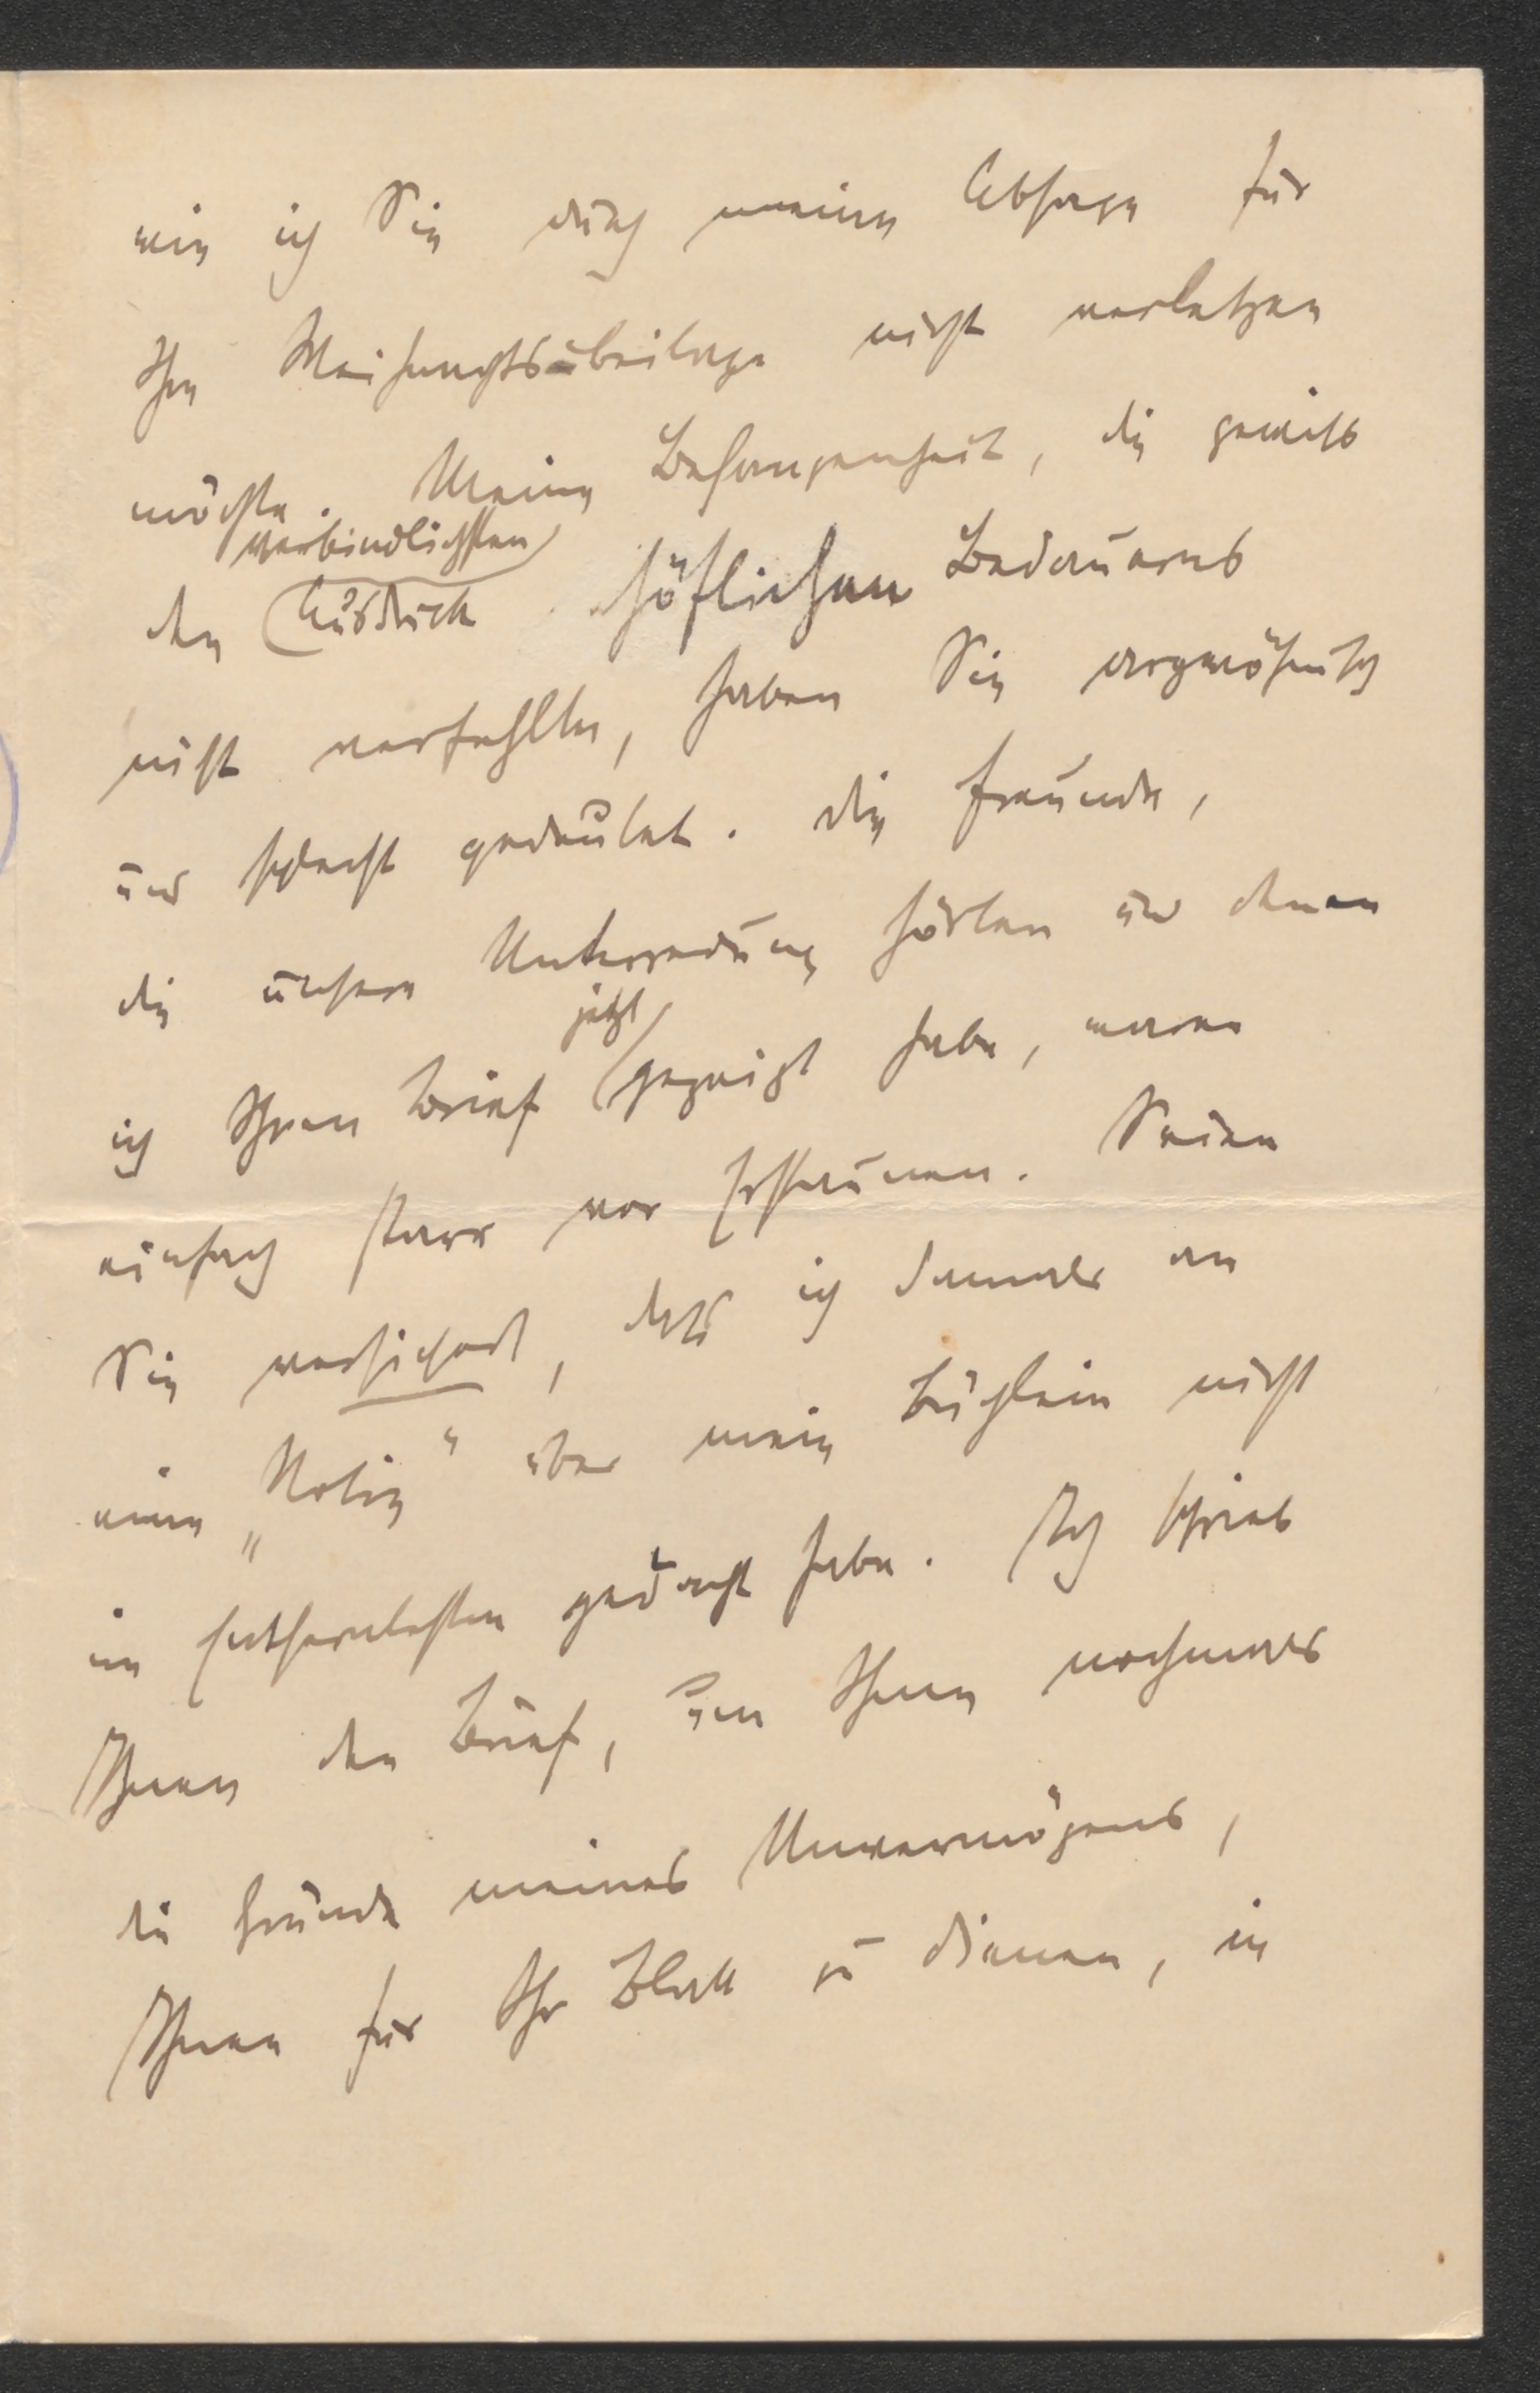 wie ich Sie durch meine Absage für
Ihre Weihnachtsbeilage nicht verletzen
möchte. Meine Befangenheit, die gewiss
verbindlichsten
den Ausdruck höflichen Bedauerns
nicht verfehlte, haben Sie argwöhnisch
und schlecht gedeutet. Die Freunde,
die unsere Unterredung hörten und denen
jetzt
ich Ihren Brief gezeigt habe, waren
einfach starr vor Erstaunen. Seien
Sie versichert, dass ich damals an
eine „Notiz“ über mein Büchlein nicht
im Entferntesten gedacht habe. Ich schrieb
Ihnen den Brief, um Ihnen nochmals
die Gründe meines Unvermögens,
Ihnen für Ihr Blatt zu dienen, in